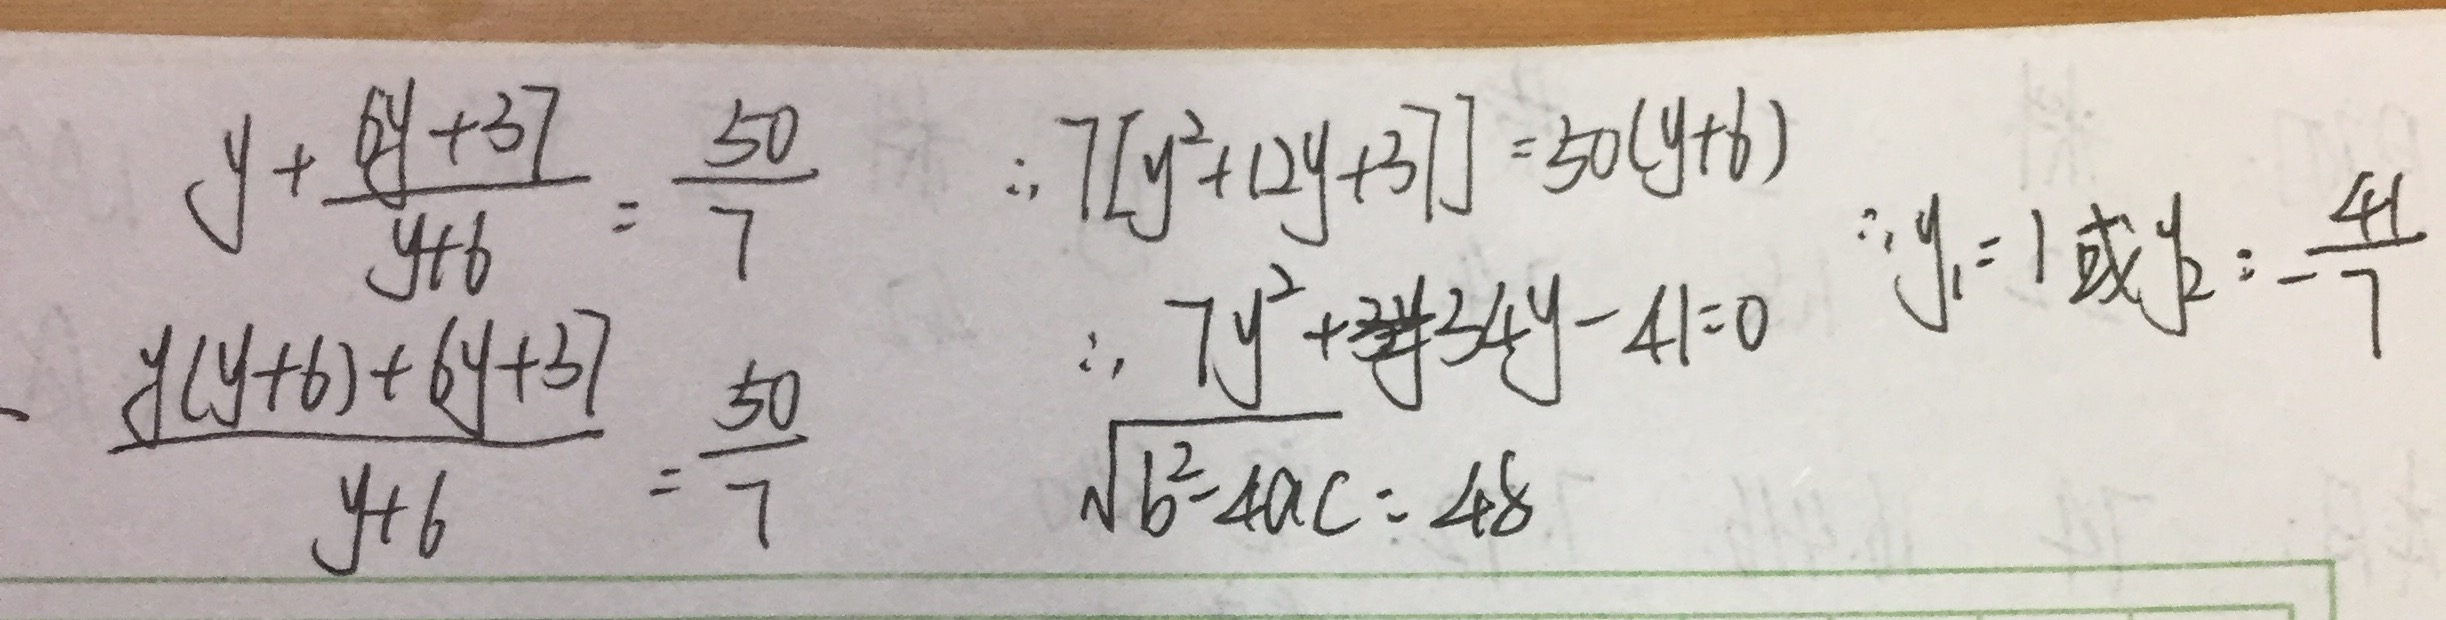 y + \frac{6y+37}{y+6} = \frac{50}{7}
\frac{y(y+6)+6y+37}{y+6} = \frac{50}{7}
∴ 7[y²+12y+37] = 50(y+6)
∴ 7y²+34y-41=0
\sqrt{b²-4ac} = 48
∴ y₁=1 或 y₂=-\frac{41}{7}